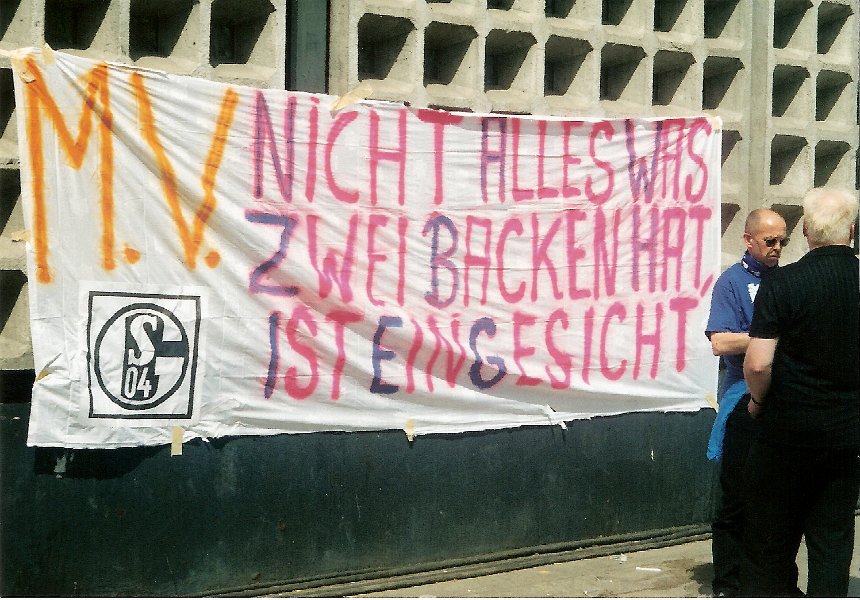 M.V.
NICHT ALLES WAS
ZWEI BACKEN HAT,
IST EIN GESICHT
S
04